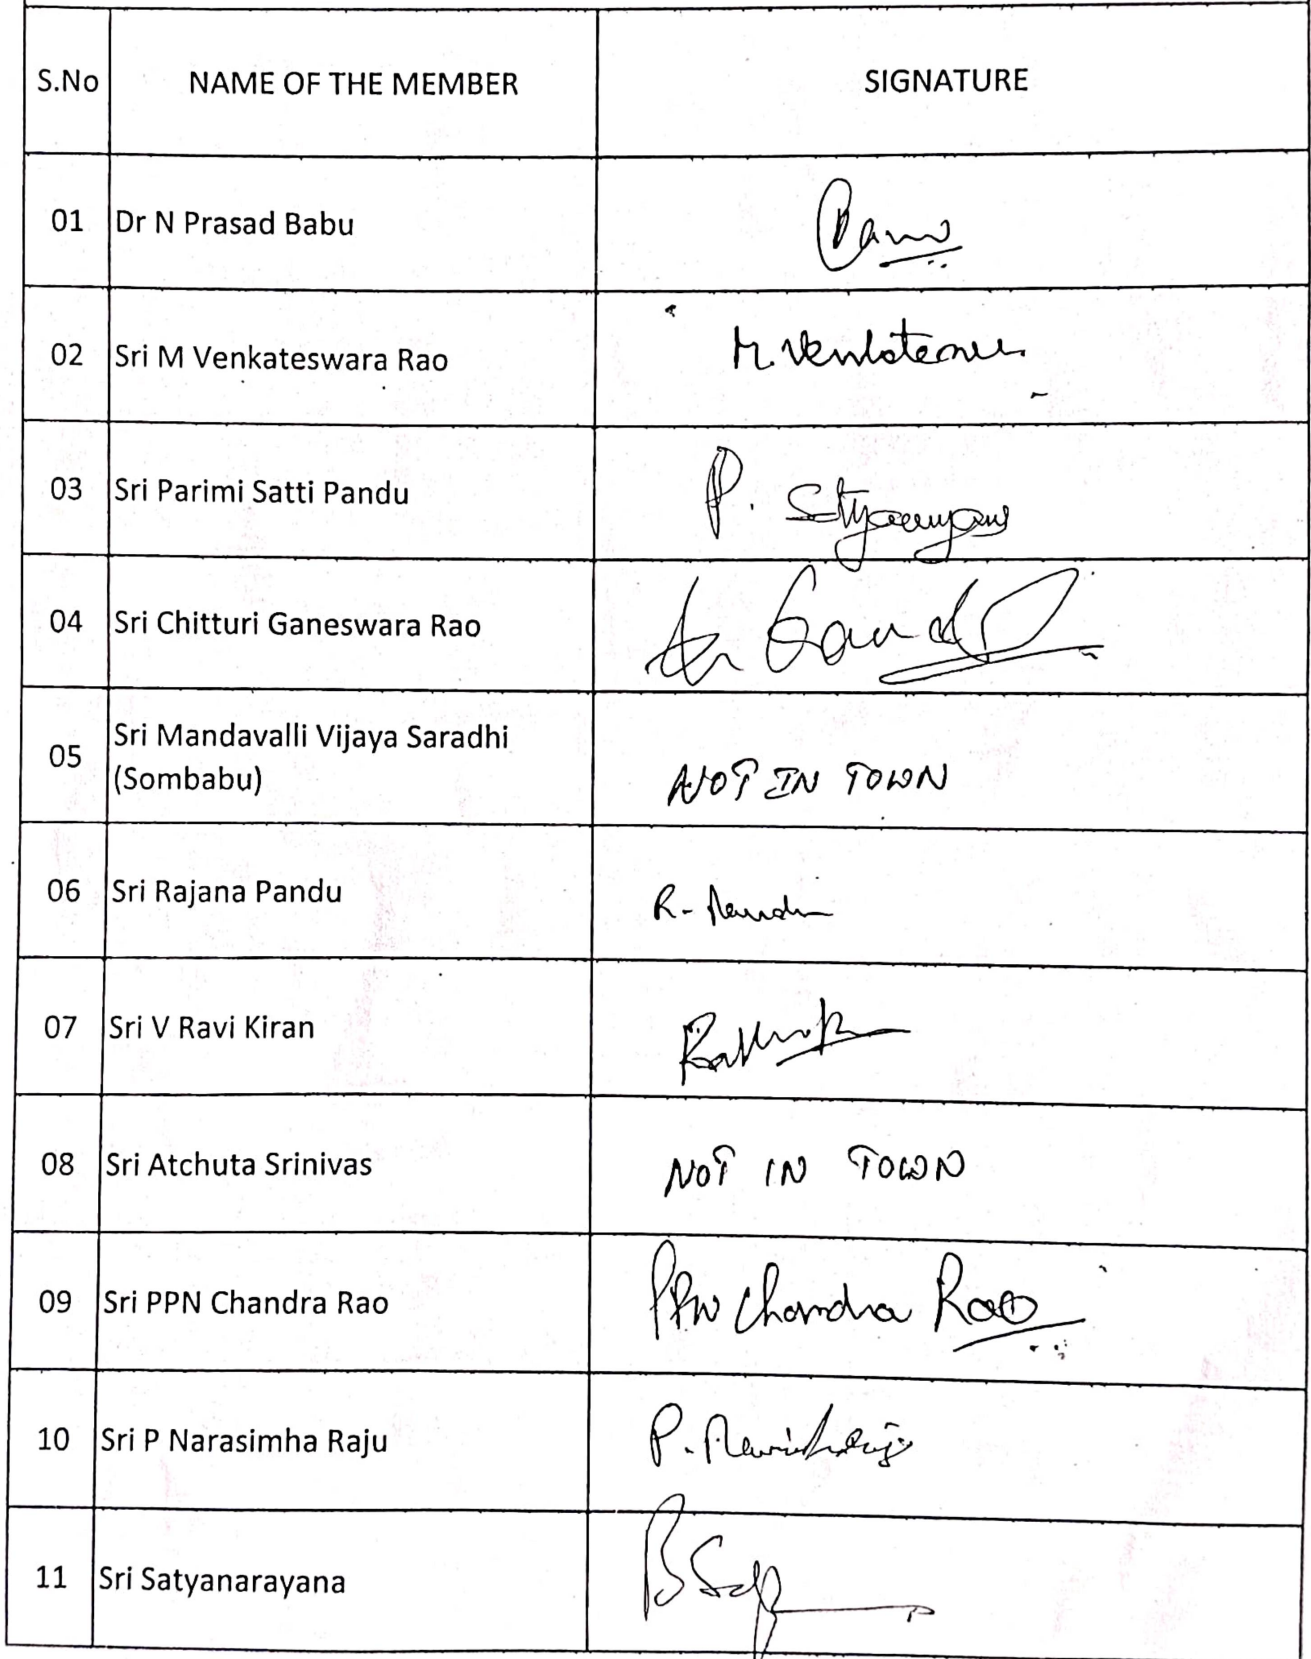 S.No NAME OF THE MEMBER SIGNATURE
01 Dr N Prasad Babu
02 Sri M Venkateswara Rao
03 Sri Parimi Satti Pandu P.
04 Sri Chitturi Ganeswara Rao
05 Sri Mandavalli Vijaya Saradhi
(Sombabu) NOT IN TOWN
06 Sri Rajana Pandu R-
07 Sri V Ravi Kiran
08 Sri Atchuta Srinivas NOT IN TOWN
09 Sri PPN Chandra Rao PPN Chandra Rao
10 Sri P Narasimha Raju P.
11 Sri Satyanarayana